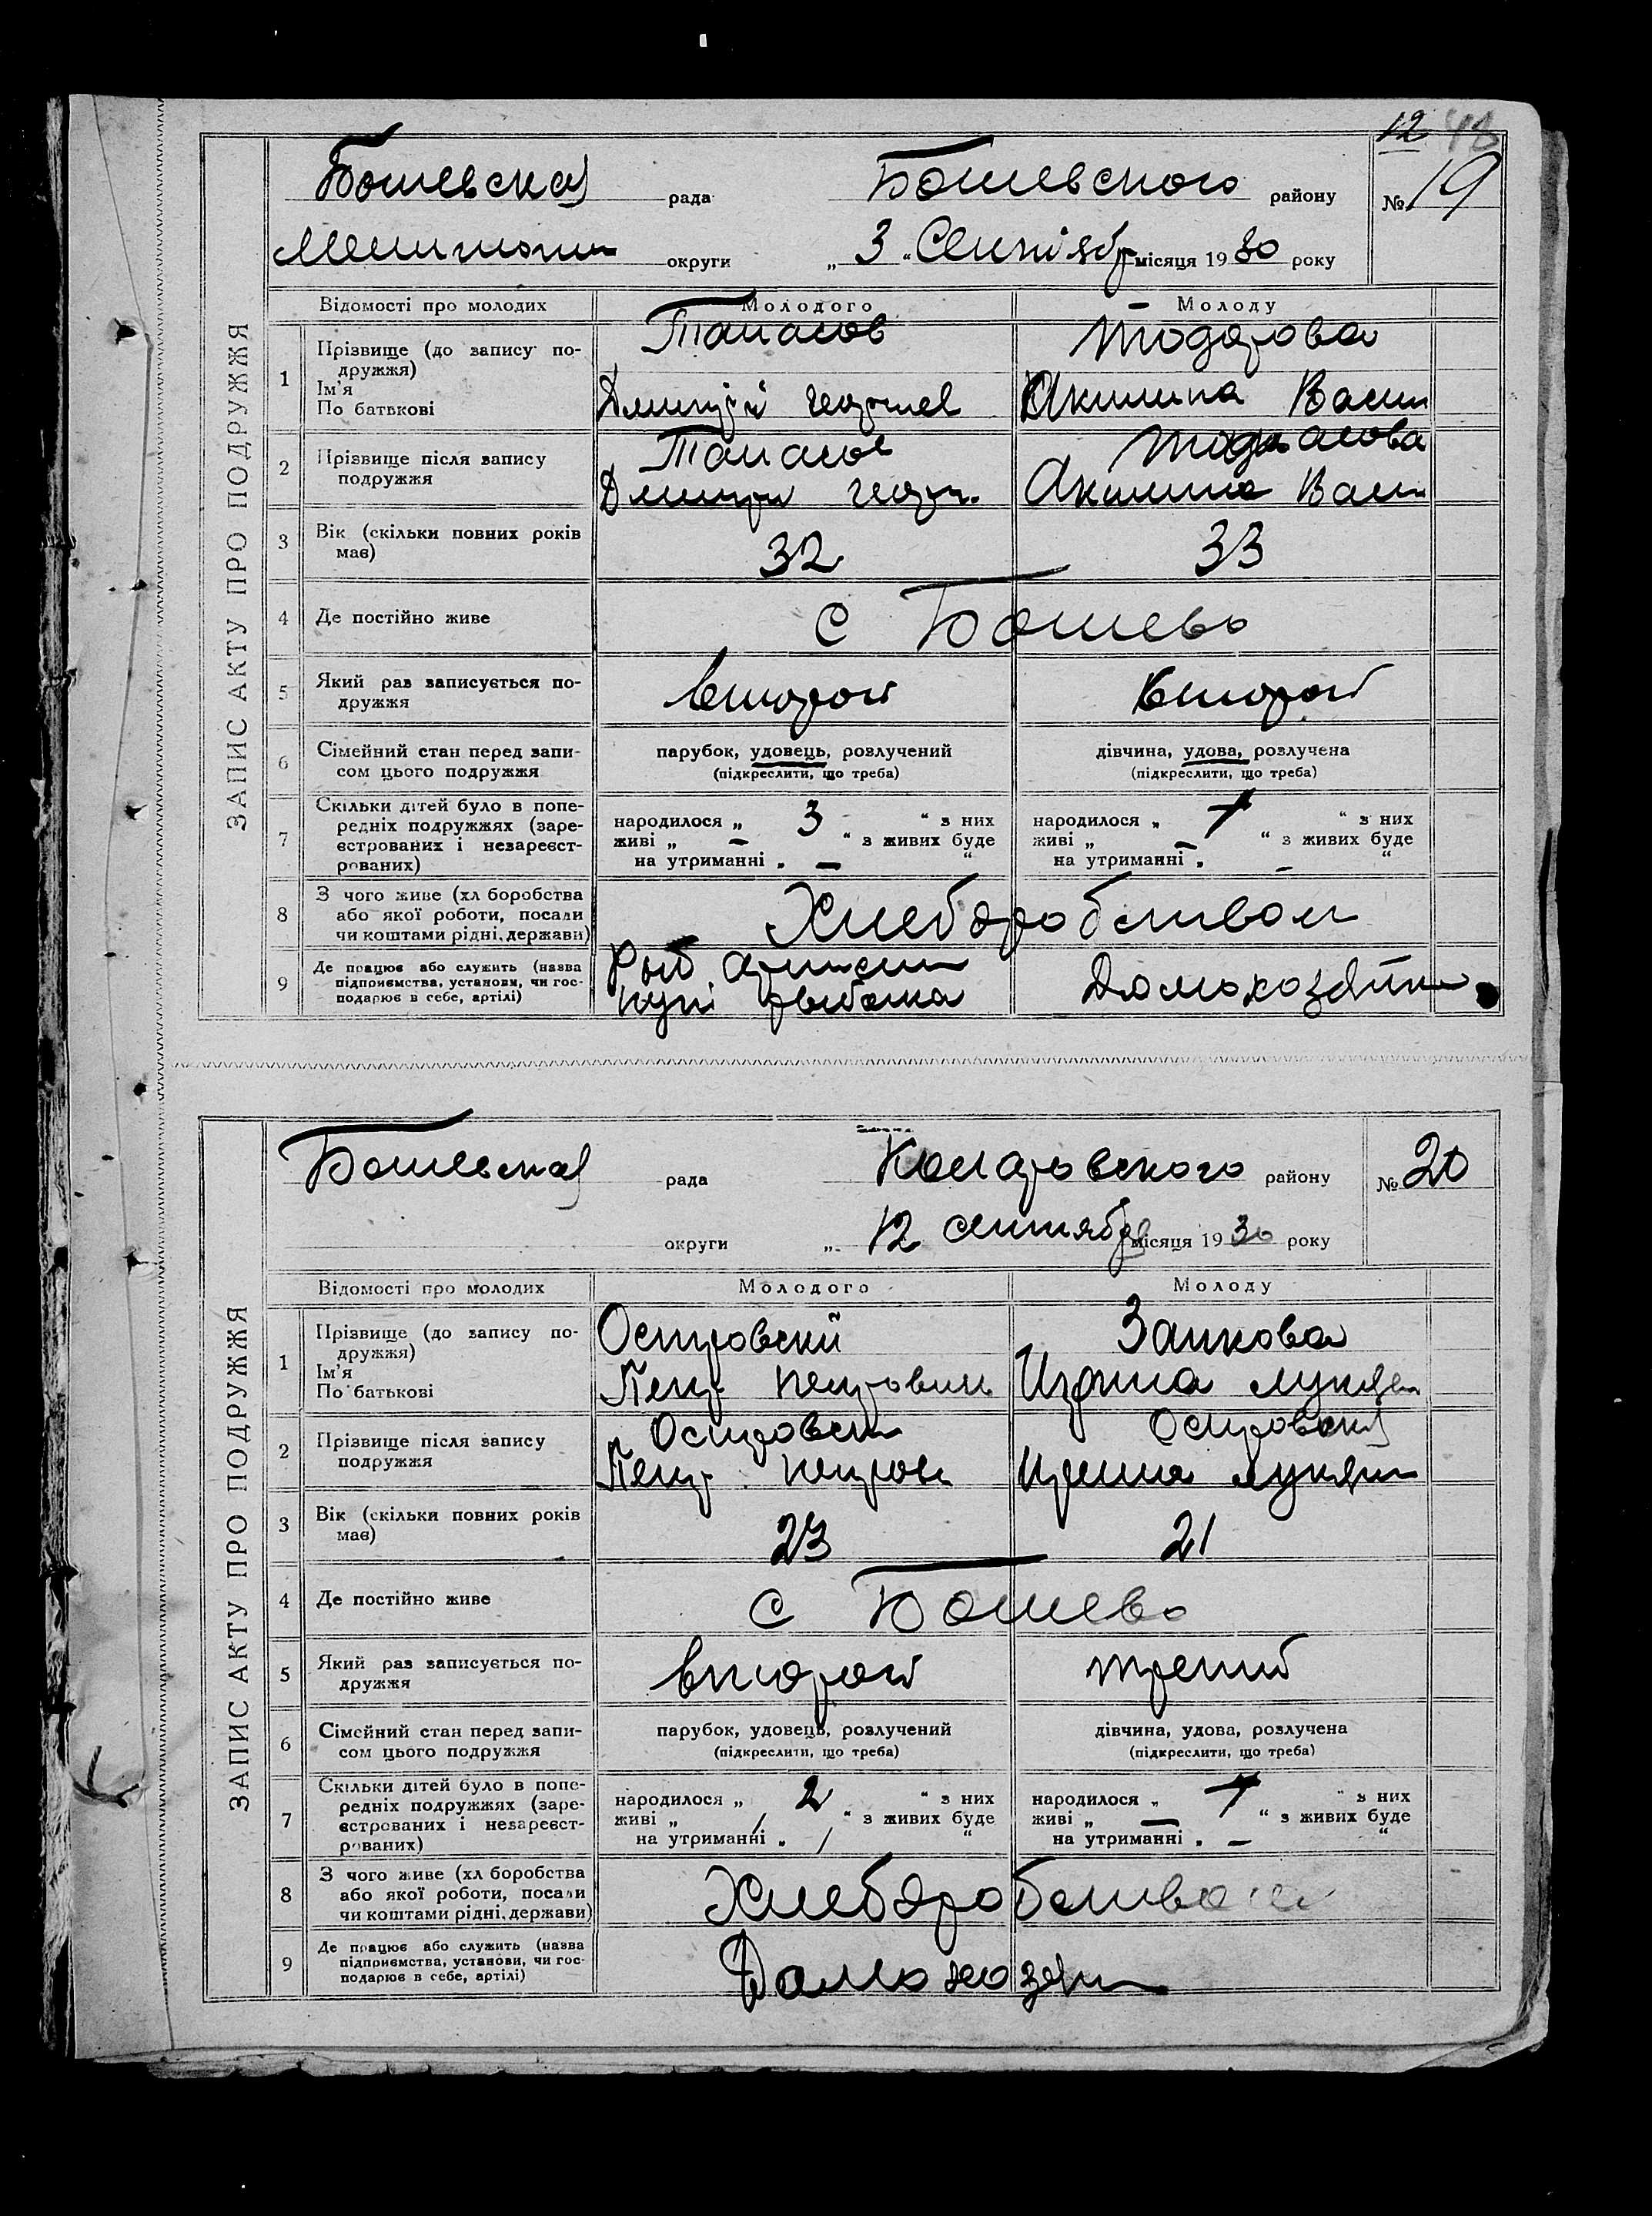 12 48
Бошевская рада Бошевского району № 19
округи „ 3 “ місяця 1930 року
ЗАПИС АКТУ ПРО ПОДРУЖЖЯ
Відомості про молодих Молодого Молоду
1 Прізвище (до запису по-
дружжя)
Ім'я
По батькові
Танасов Тодорова
Дмитрій Георгиев Акилина Васи
2 Прізвище після запису
подружжя
Танасов
Дмитри Георг. Акилина Васи
3 Вік (скільки повних років
має)
32 33
4 Де постійно живе С Бошево
5 Який раз записується по-
дружжя
второй второй
6 Сімейний стан перед запи-
сом цього подружжя
парубок, удовець, розлучений дівчина, удова, розлучена
(підкреслити, що треба) (підкреслити, що треба)
7 Скільки дітей було в попе-
редніх подружжях (заре-
єстрованих і незареєст-
рованих)
народилося „ 3 “ з них народилося „ 1 “ з них
живі „ — “ з живих буде живі „ — “ з живих буде
на утриманні „ — “ на утриманні „ — “
8 З чого живе (хліборобства
або якої роботи, посади
чи коштами рідні, держави)
Хлебороботвом
9 Де працює або служить (назва
підприємства, установи, чи гос-
подарює в себе, артілі)
Рыб
рыбака Домохозяйн
Бошевская рада Комаровского району № 20
округи „ 12 сентября місяця 1930 року
ЗАПИС АКТУ ПРО ПОДРУЖЖЯ
Відомості про молодих Молодого Молоду
1 Прізвище (до запису по-
дружжя)
Ім'я
По батькові
Островский Занкова
Петр Петрович Ирина Лукян
2 Прізвище після запису
подружжя
Островски Островская
Петр Петров Ирина Лукян
3 Вік (скільки повних років
має)
23 21
4 Де постійно живе С Бошево
5 Який раз записується по-
дружжя
второй третий
6 Сімейний стан перед запи-
сом цього подружжя
парубок, удовець, розлучений дівчина, удова, розлучена
(підкреслити, що треба) (підкреслити, що треба)
7 Скільки дітей було в попе-
редніх подружжях (заре-
єстрованих і незареєст-
рованих)
народилося „ 2 “ з них народилося „ 1 “ з них
живі „ 1 “ з живих буде живі „ — “ з живих буде
на утриманні „ 1 “ на утриманні „ — “
8 З чого живе (хліборобства
або якої роботи, посади
чи коштами рідні, держави)
Хлебороботвом
9 Де працює або служить (назва
підприємства, установи, чи гос-
подарює в себе, артілі)
Домохозяин